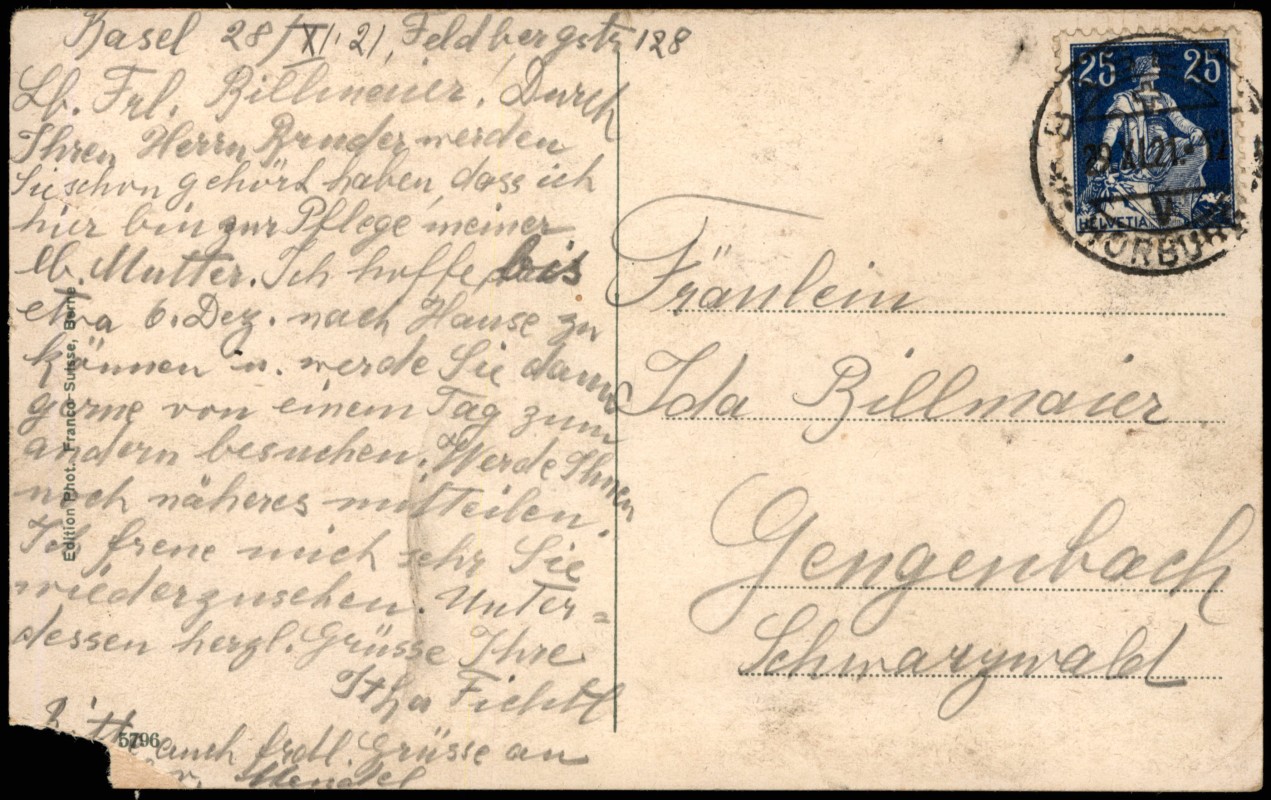 Basel 28/XI.21, Feldbergstr 128
Lb. Frl. Billmaier. Durch
Ihren Herrn Bruder werden
Sie schon gehört haben, dass ich
hier bin zur Pflege meiner
lb. Mutter. Ich hoffe, bis
etwa 6. Dez. nach Hause zu
können u. werde Sie dann
gerne von einem Tag zum
andern besuchen. Werde Ihnen
noch näheres mitteilen.
Ich freue mich sehr Sie
wiederzusehen. Unter=
dessen herzl. Grüsse Ihre
Itha Fichtl
Bitte auch frdl. Grüsse an
Edition Phot. Franco-Suisse, Berne
5796
25 25
HELVETIA
29.XI.21.-12
V
Fräulein
Ida Billmaier
Gengenbach
Schwarzwald